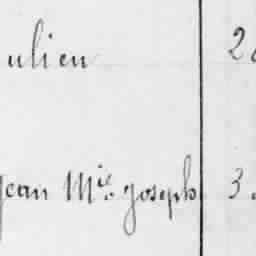 ulien 2
jean M.ie joseph 3